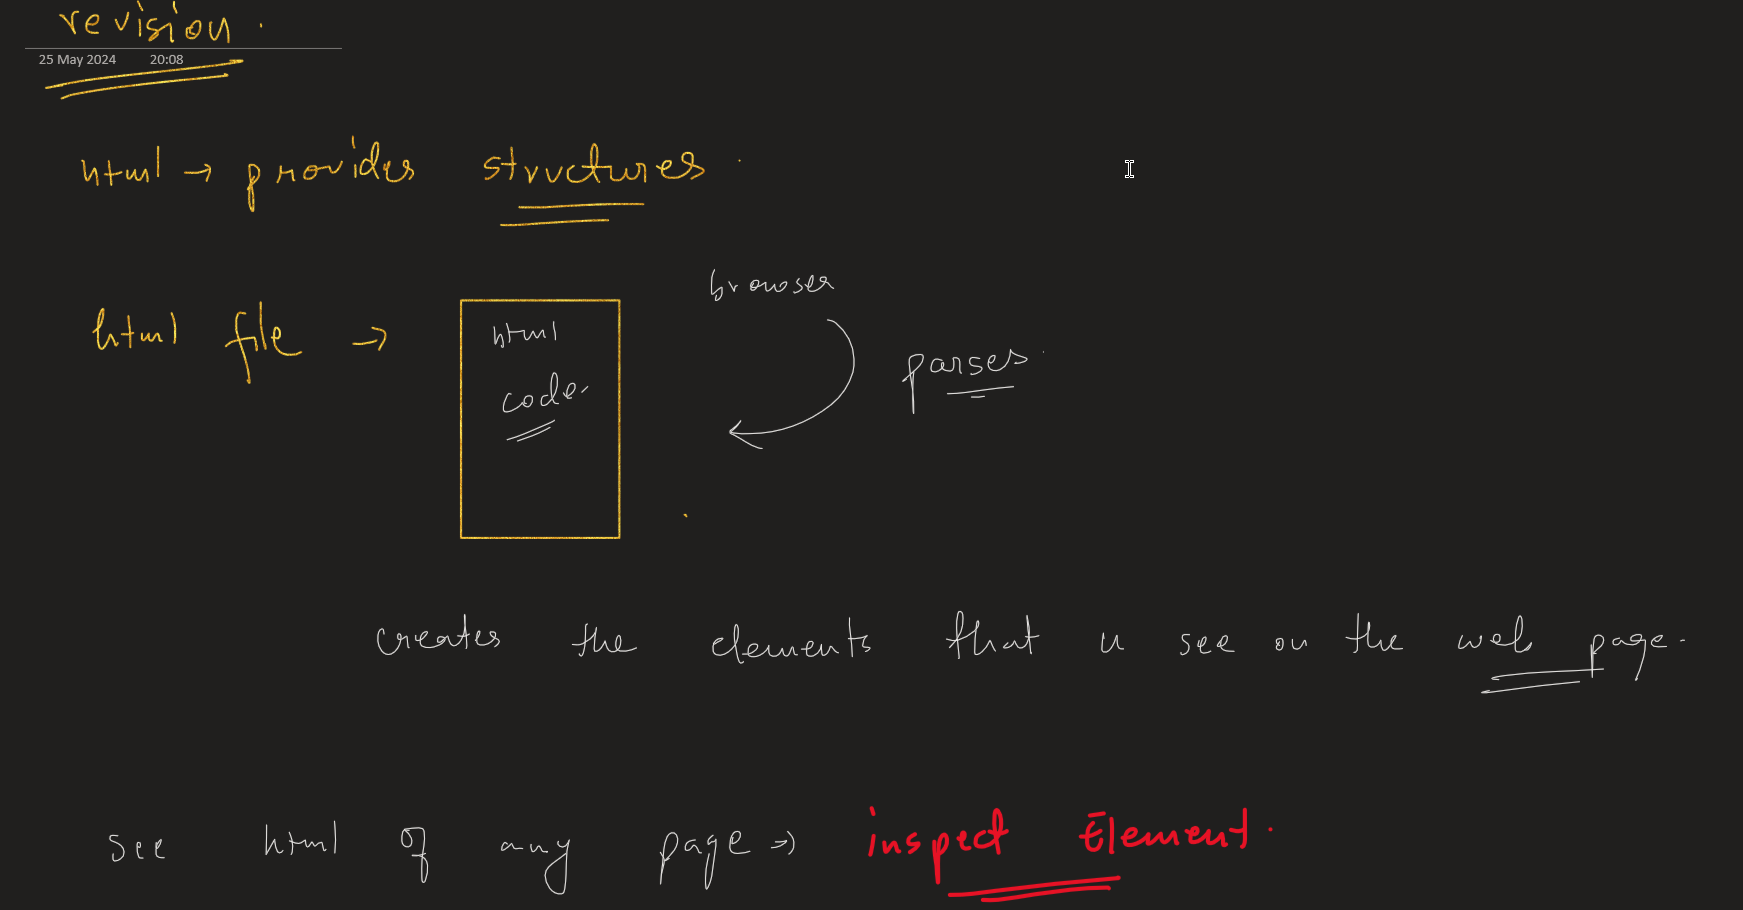 revision.
25 May 2024 20:08
html → provides structures.
browser
html file →
html
code.
parses.
creates the elements that u see on the web page.
see html of any page → inspect Element.